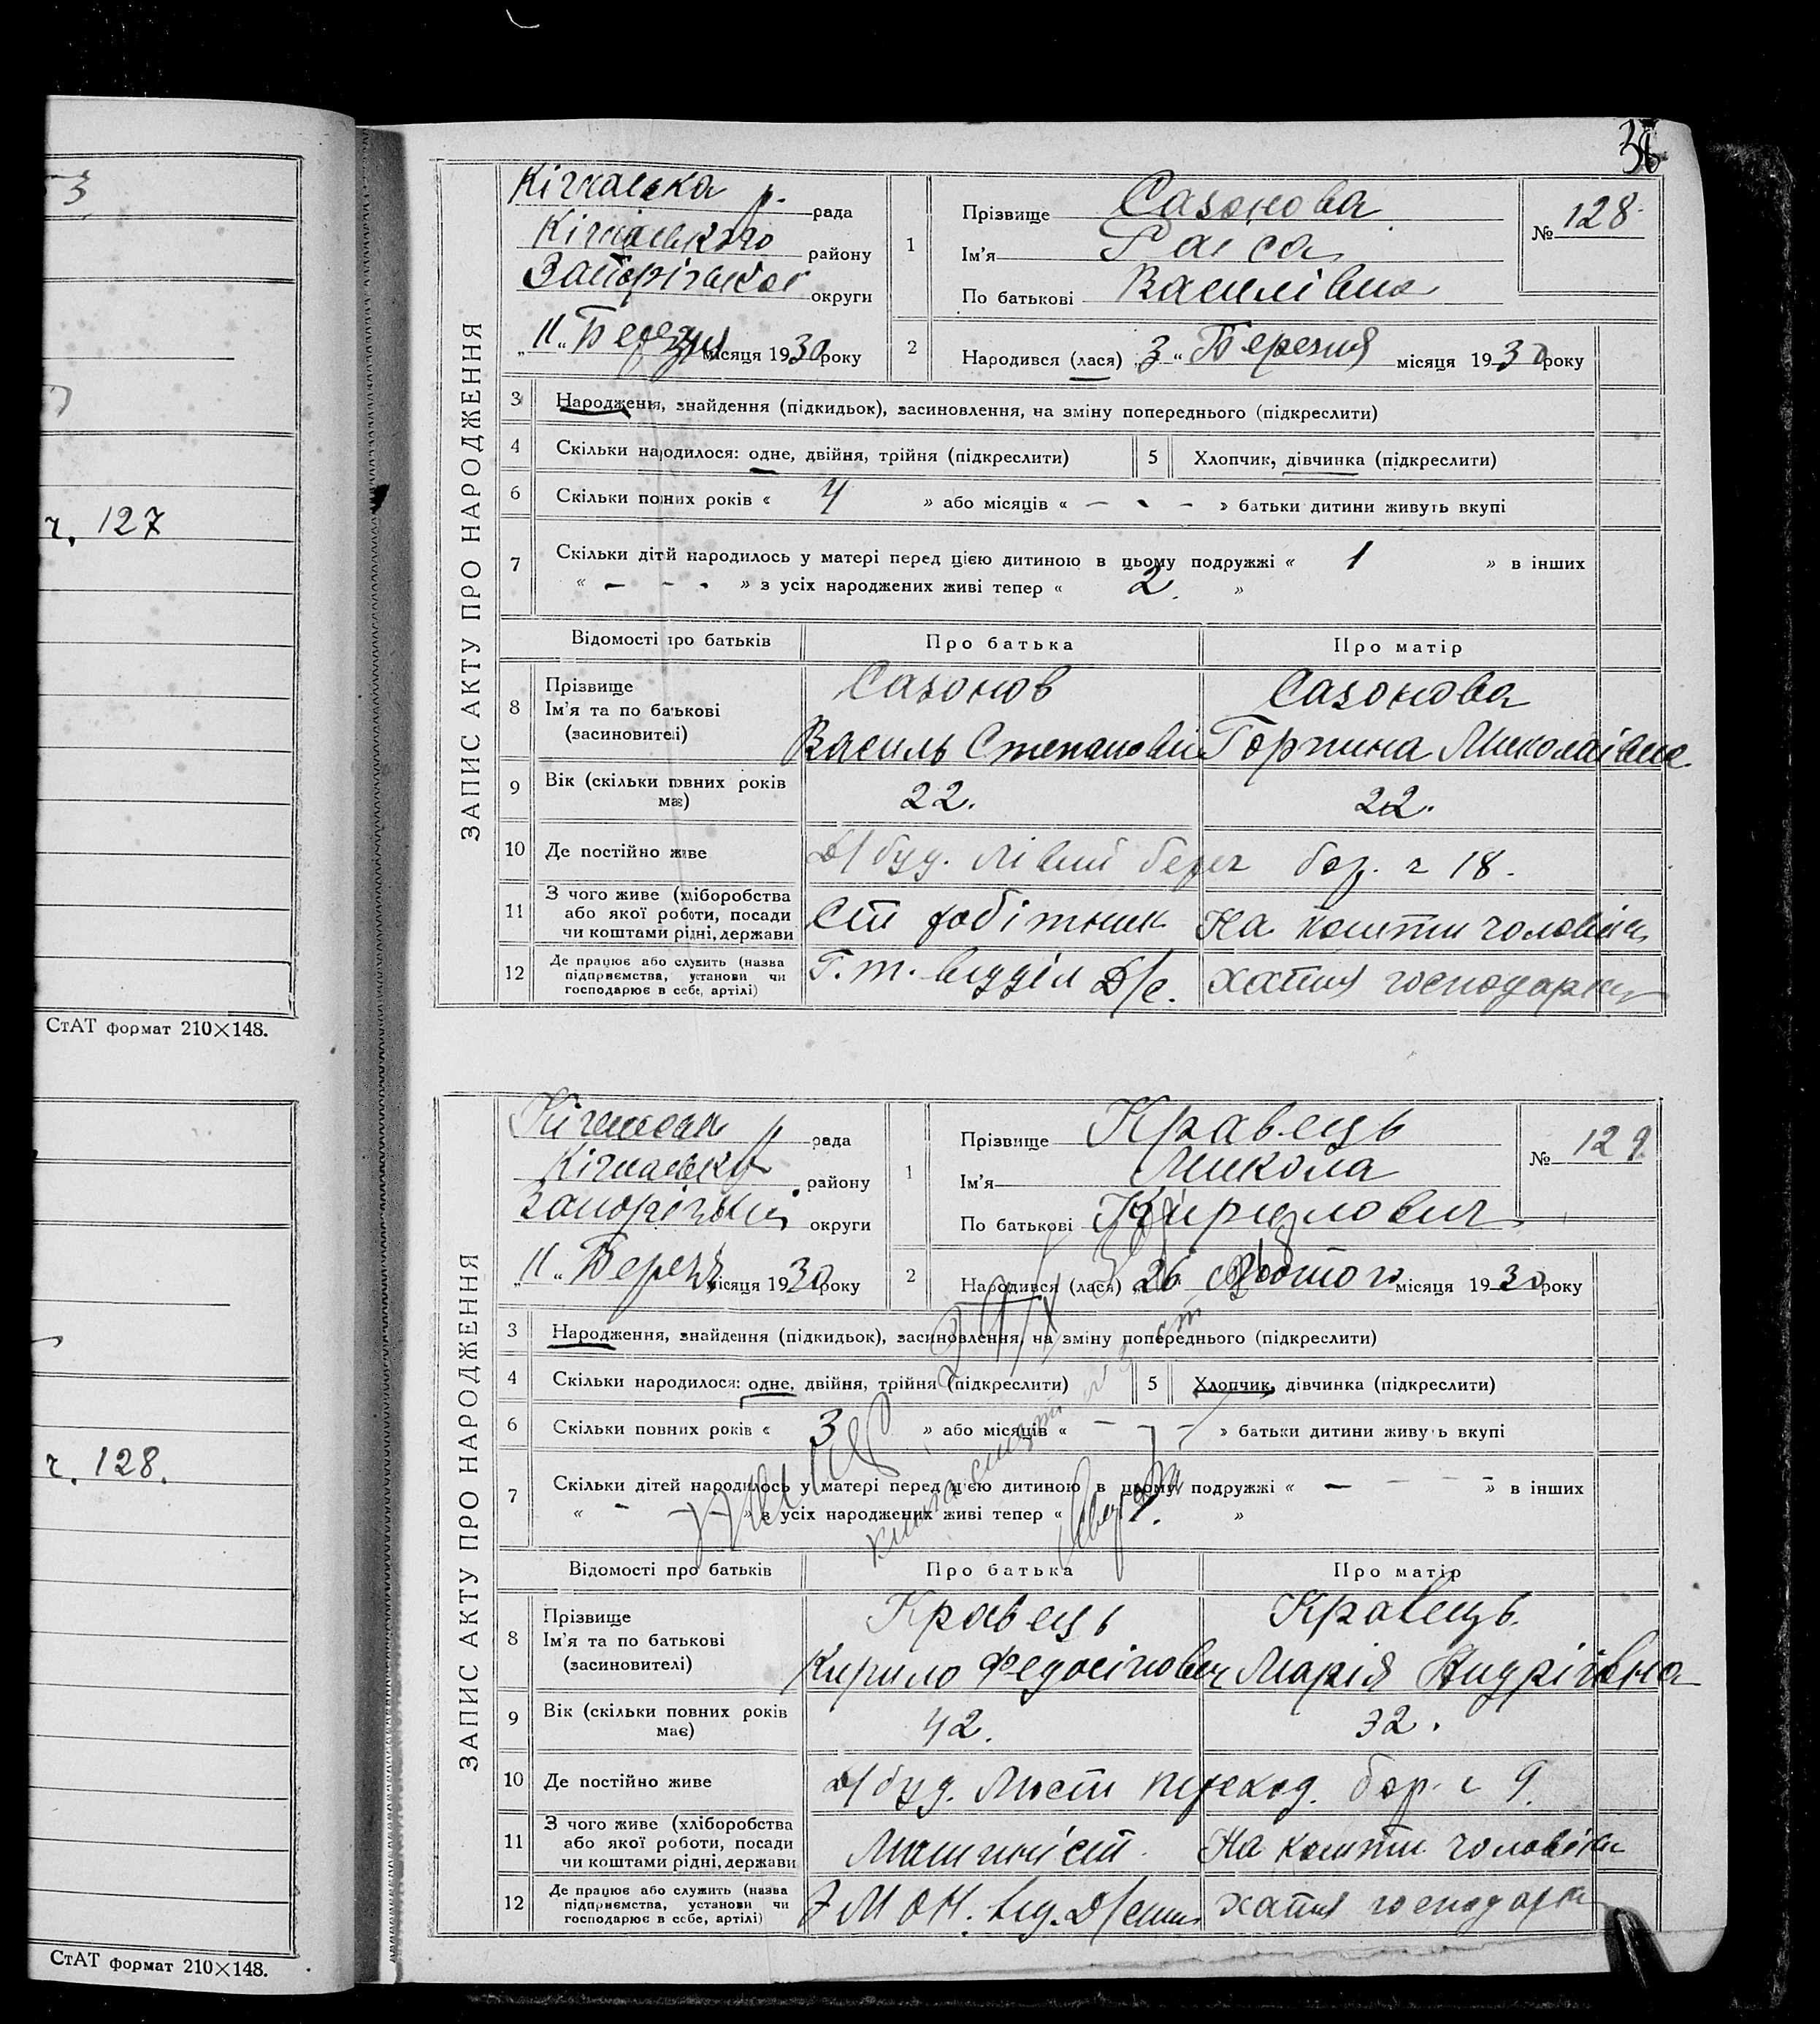 36
3
ч. 127
СтАТ формат 210×148.
ч. 128.
СтАТ формат 210×148.
ЗАПИС АКТУ ПРО НАРОДЖЕННЯ
Кічкаська р. рада
Кічкаського району
Запорізької округи
„11“ Березня місяця 1930 року
1
Прізвище Сазонова
Ім'я Раїса
По батькові Василівна
№ 128
2 Народився (лася) „3“ Березня місяця 1930 року
3 Народження, знайдення (підкидьок), засиновлення, на зміну попереднього (підкреслити)
4 Скільки народилося: одне, двійня, трійня (підкреслити) 5 Хлопчик, дівчинка (підкреслити)
6 Скільки повних років « 4 » або місяців « – - – » батьки дитини живуть вкупі
7 Скільки дітей народилось у матері перед цією дитиною в цьому подружжі « 1 » в інших
« – - - » з усіх народжених живі тепер « 2. »
Відомості про батьків Про батька Про матір
8 Прізвище Сазонов Сазонова
Ім'я та по батькові
(засновителі) Василь Степанович Горпина Миколаївна
9 Вік (скільки повних років має) 22. 22.
10 Де постійно живе Д/буд. Лівий берег бар. ч 18.
11 З чого живе (хліборобства
або якої роботи, посади
чи коштами рідні, держави Ст робітник На кошти чоловіка
12 Де працює або служить (назва
підприємства, установи чи
господарює в себе, артілі) Г.т. відділ Д/с. хатня господарка
ЗАПИС АКТУ ПРО НАРОДЖЕННЯ
Кічкаська р рада
Кічкаськ району
Запорізький округи
„11“ Березн місяця 1930 року
1
Прізвище Кравець
Ім'я Микола
По батькові Кирилович
№ 129
2 Народився (лася) „26 Лютого місяця 1930 року
3 Народження, знайдення (підкидьок), засиновлення, на зміну попереднього (підкреслити)
4 Скільки народилося: одне, двійня, трійня (підкреслити) 5 Хлопчик, дівчинка (підкреслити)
6 Скільки повних років « 3 » або місяців « – - – » батьки дитини живуть вкупі
7 Скільки дітей народилось у матері перед цією дитиною в цьому подружжі « – - - - » в інших
« – » з усіх народжених живі тепер « 1. »
Відомості про батьків Про батька Про матір
8 Прізвище Кравець Кравець
Ім'я та по батькові
(засиновителі) Кирило Федосійович Марія Андріївна
9 Вік (скільки повних років має) 42. 32.
10 Де постійно живе Д/буд. Мост переход. бар. ч 9.
11 З чого живе (хліборобства
або якої роботи, посади
чи коштами рідні, держави Машиніст На кошти чоловіка
12 Де працює або служить (назва
підприємства, установи чи
господарює в себе, артілі) від. хатня господарка